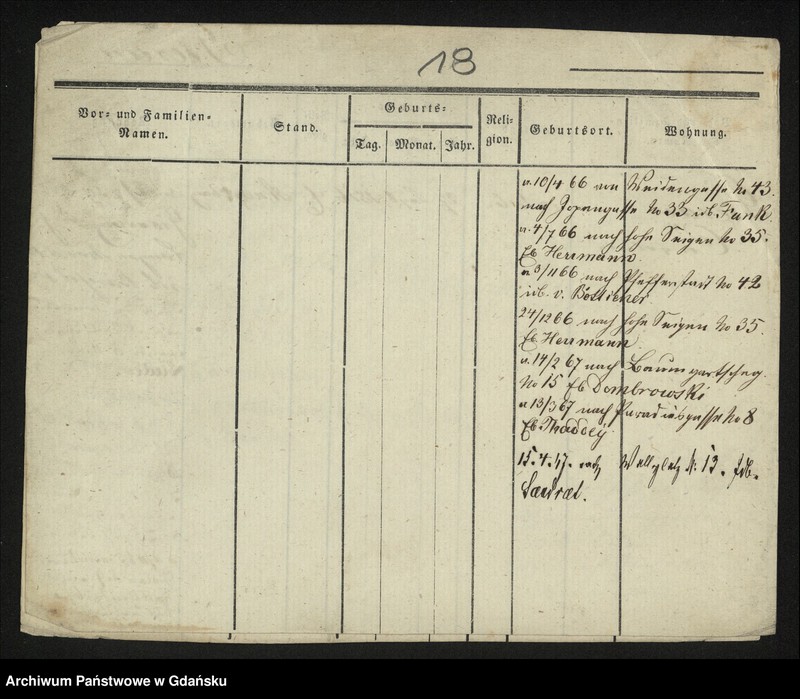 18
Vor- und Familien-
Namen.
Stand.
Geburts-
Tag.
Monat.
Jahr.
Reli-
gion.
Geburtsort.
Wohnung.
a. 10/4 66 von Weidengasse No 43.
nach Jopengasse No 33 ib. Funk.
a. 4/7 66 nach hohe Seigen No 35.
Eb. Herrmann.
a 3/11 66 nach Pfefferstadt No 42
ib. v. Bötticher
24/12 66 nach hohe Seigen No 35.
Eb. Herrmann.
a. 14/2 67 nach Baumgartscheg.
No 15 Eb Dombrowski
a 13/3 67 nach Paradiesgasse No 8
Eb.
15.4.67. nach Wallplatz N. 13.
Archiwum Państwowe w Gdańsku